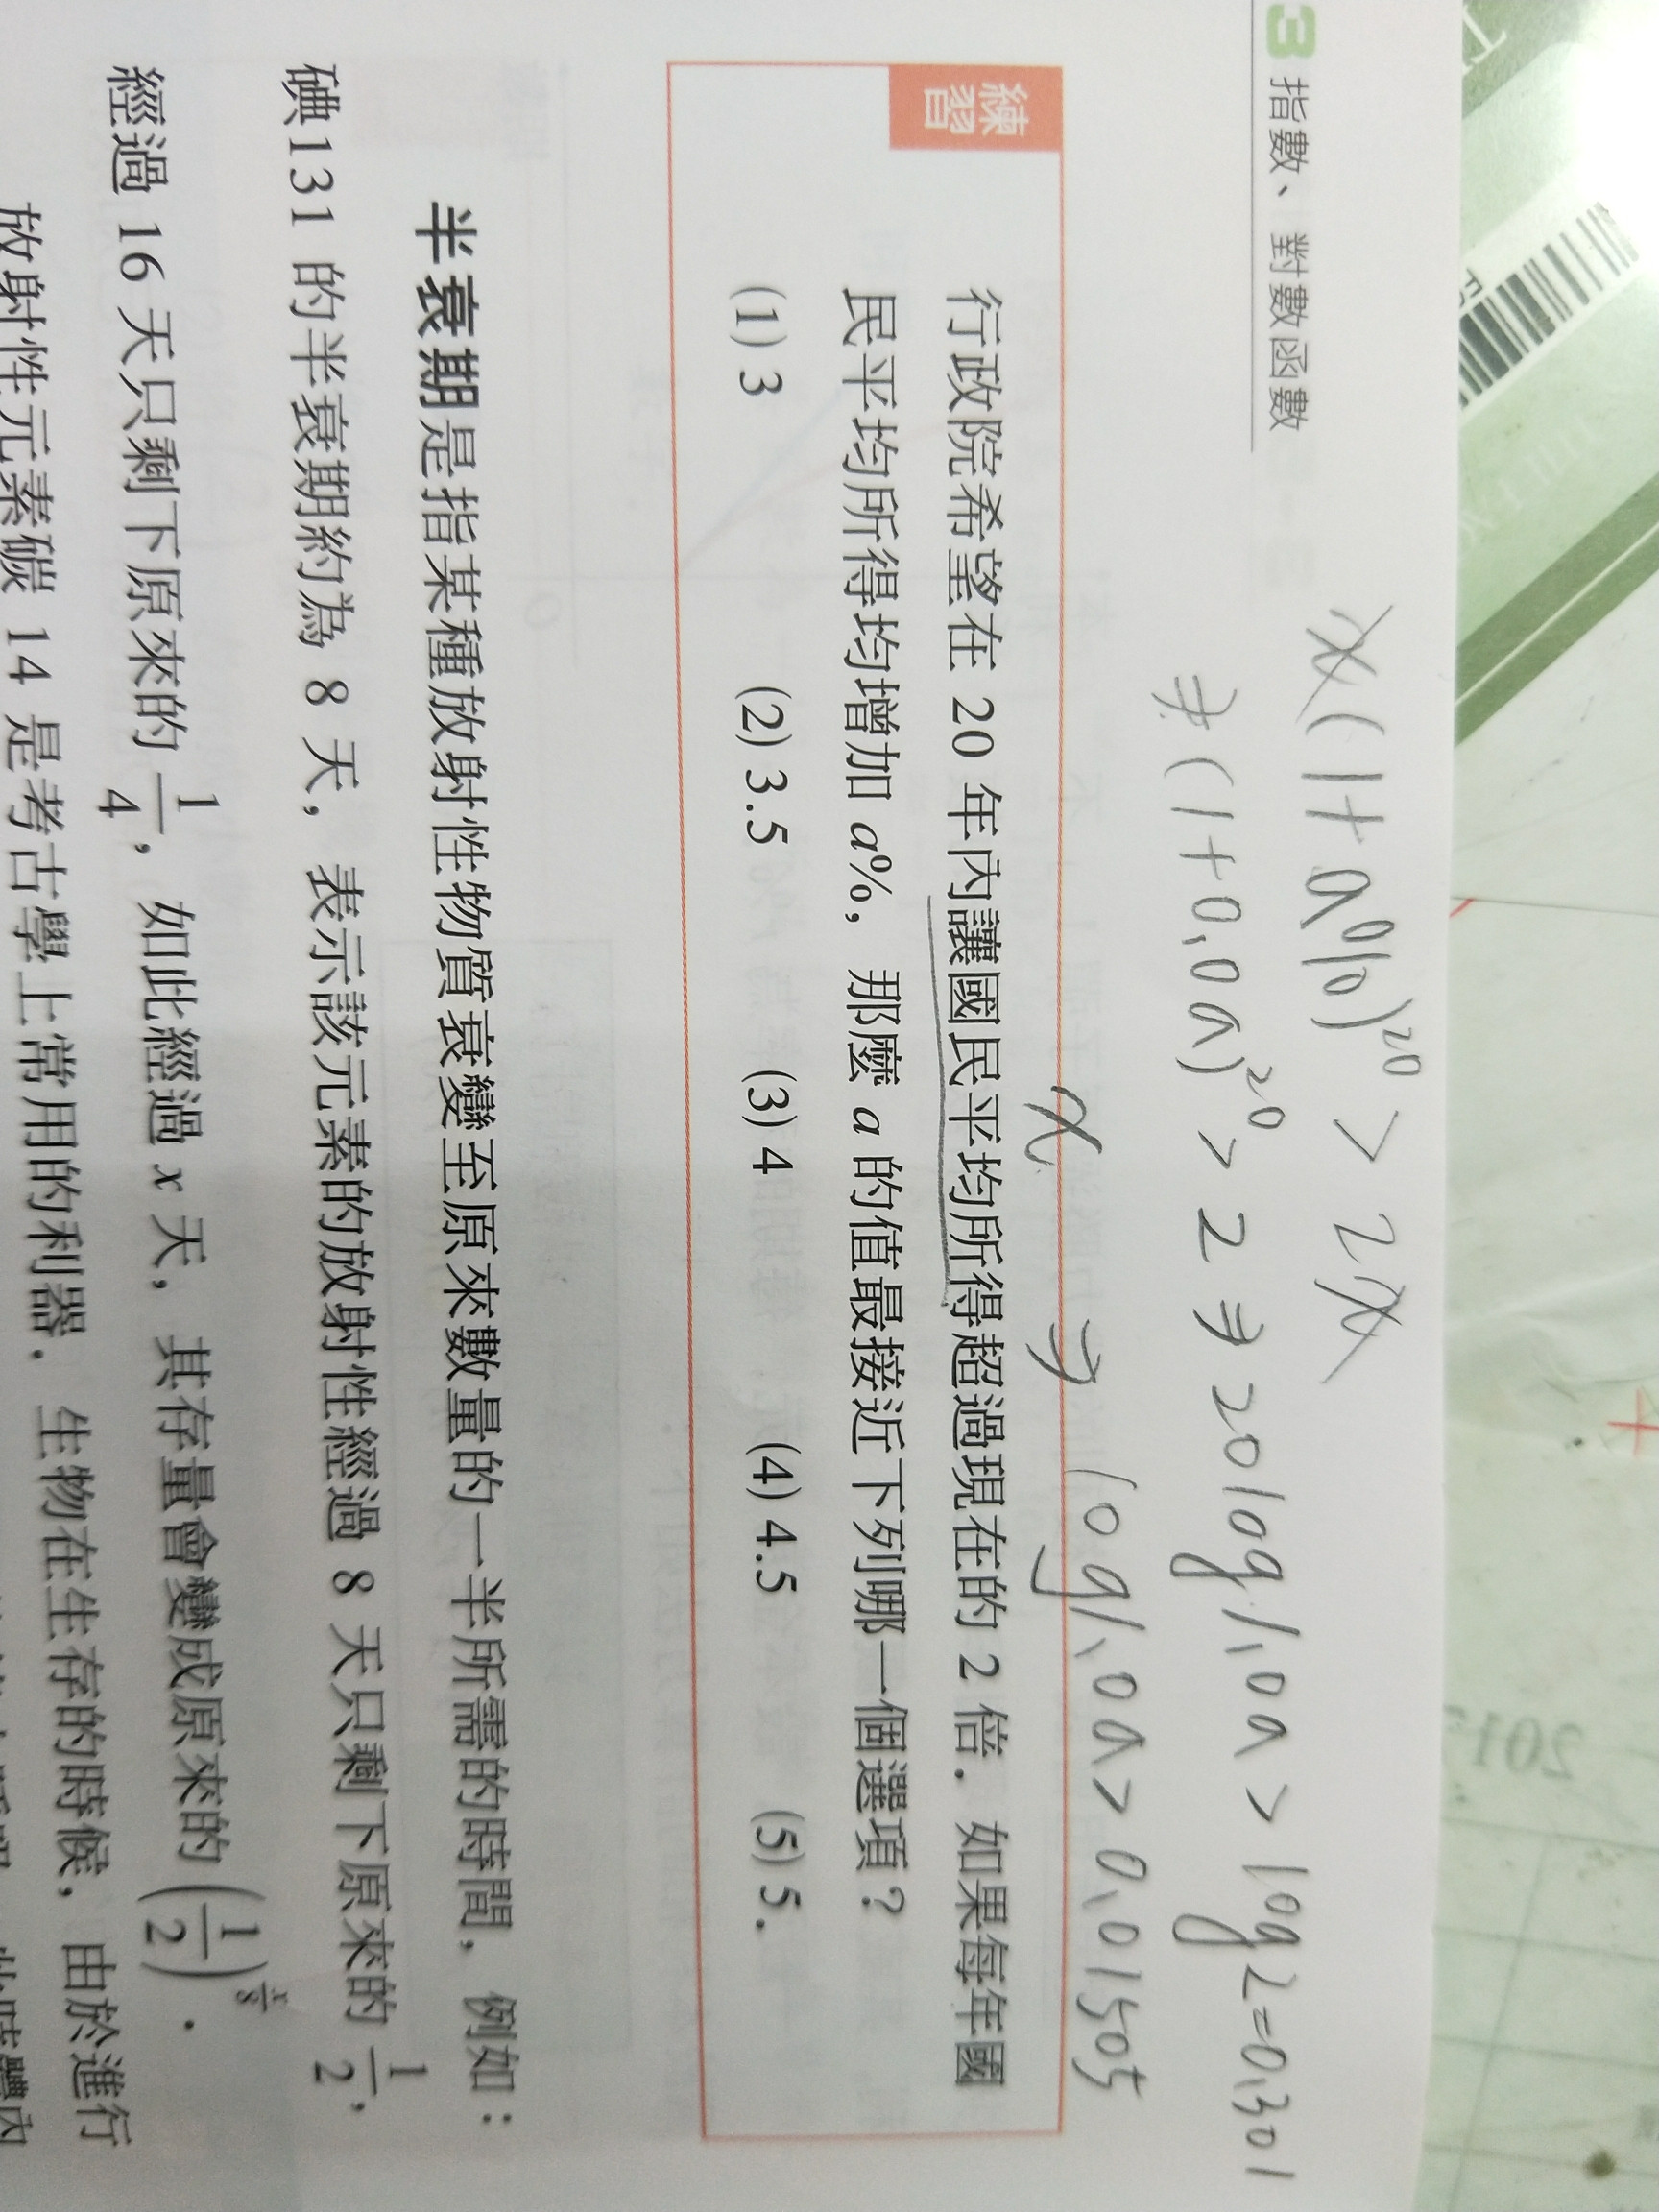 3 指數、對數函數
x(1+a%)²⁰ > 2x
⇒ (1+0.0a)²⁰ > 2 ⇒ 20log1.0a > log2=0.301
x ⇒ log1.0a > 0.01505
練習
行政院希望在 20 年內讓國民平均所得超過現在的 2 倍．如果每年國
民平均所得均增加 a%，那麼 a 的值最接近下列哪一個選項？
(1) 3 (2) 3.5 (3) 4 (4) 4.5 (5) 5．
半衰期是指某種放射性物質衰變至原來數量的一半所需的時間，例如：
碘131 的半衰期約為 8 天，表示該元素的放射性經過 8 天只剩下原來的 1/2，
經過 16 天只剩下原來的 1/4，如此經過 x 天，其存量會變成原來的 (1/2)^(x/8)．
放射性元素碳 14 是考古學上常用的利器．生物在生存的時候，由於進行
201